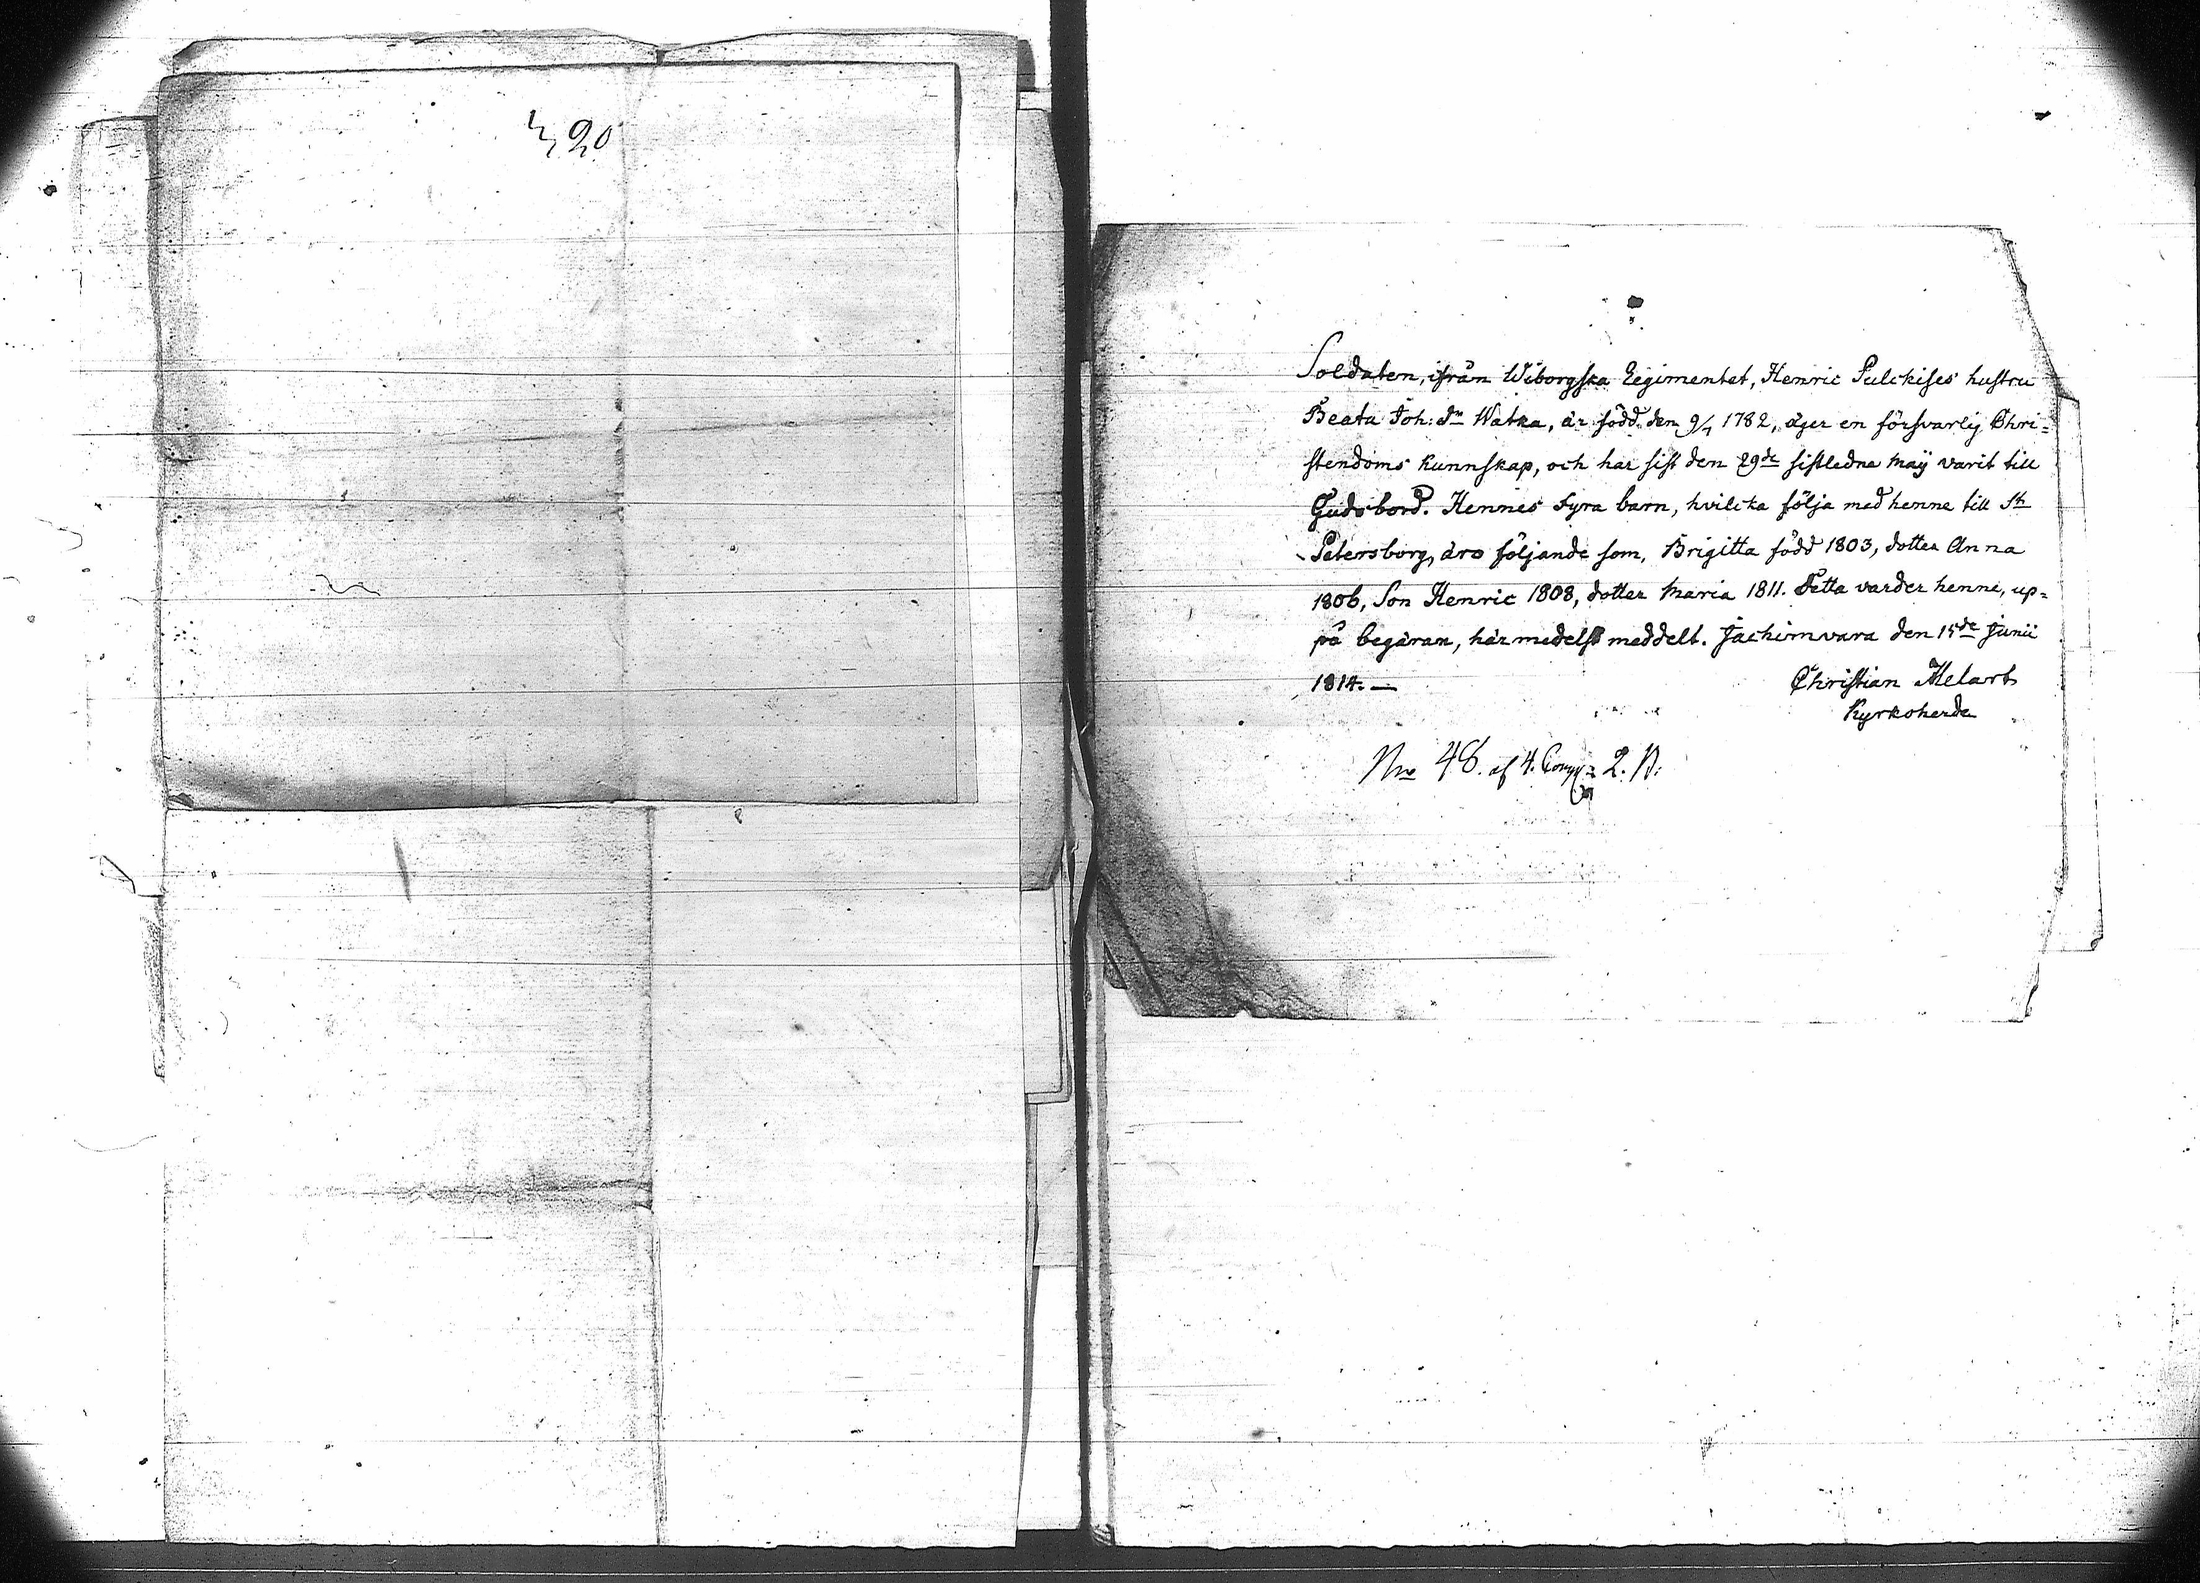 420
Soldaten, ifrån Wiborgska Regimentet, Henric Pulckises hustru
Beata Joh: Dr Watka, är född den 9/1 1782, äger en försvarlig Chri=
stendoms kunnskap, och har sist den 29de sistledne Maij varit till
Gudsbord. Hennes fyra barn, hvilcka följa med henne till St
Petersborg, äro följande som, Brigitta född 1803, dotter Anna
1806, Son Henric 1808, dotter Maria 1811. Detta varder henne, up=
på begäran, härmedelst meddelt. Jachimvara den 15de Junii
1814. —
Christian Melart
Kyrkoherde
No 48. af 4. Comp 2.